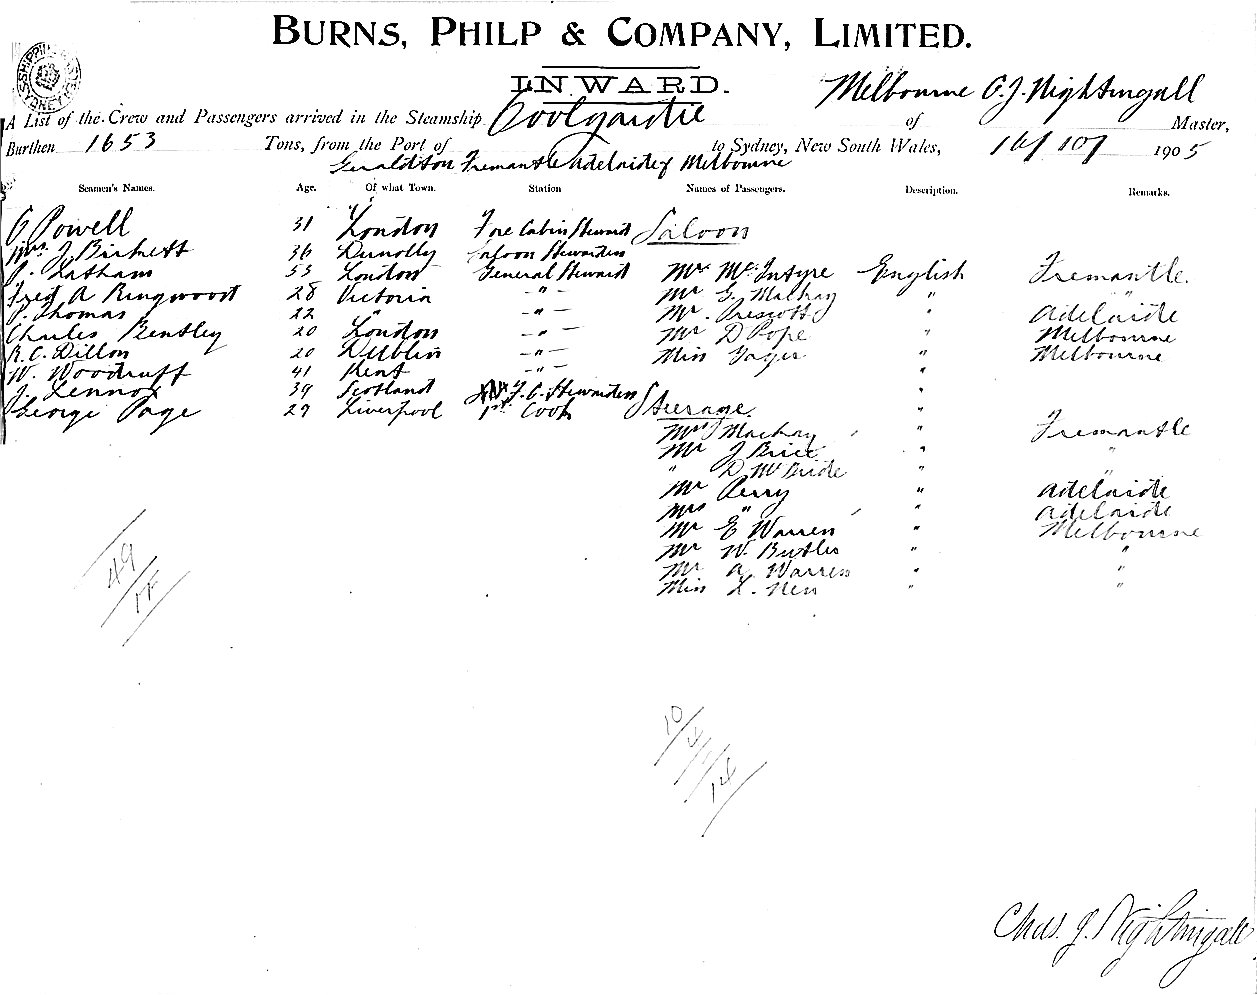 SHIPPING SYDNEY
BURNS, PHILP & COMPANY, LIMITED.
INWARD.
A List of the Crew and Passengers arrived in the Steamship Coolgardie of Melbourne C. J. Nightingall Master,
Burthen 1653 Tons, from the Port of Geraldton Fremantle Adelaide & Melbourne to Sydney, New South Wales, 16/10/ 1905
Seamen's Names. Age. Of what Town. Station Names of Passengers. Description. Remarks.
C Powell 31 London Fore Cabin Steward Saloon
Mrs. J. Birkett 36 Dunolly Saloon Stewardess
Latham 53 London General Steward Mr McIntyre English Fremantle.
Fred A Ringwood 28 Victoria -"- Mr G. Mackay " "
Thomas 22 " -"- Mr. Prescott Adelaide
Charles Bentley 20 London -"- Mr D Pope " Melbourne
R. C. Dillon 20 Dublin -"- Miss " Melbourne
W. Woodruff 41 Kent -"- "
J. Lennox 39 Scotland F. C. Stewardess "
George Page 27 Liverpool 1st Cook Steerage. "
Mrs Mackay " Fremantle
Mr J Brice " "
" D McBride " "
Mr Perry " Adelaide
Mrs " " Adelaide
Mr E Warren " Melbourne
Mr W. Butler " "
Mr A. Warren " "
Miss L. Ness " "
49
10
4
14
Chas. J. Nightingall